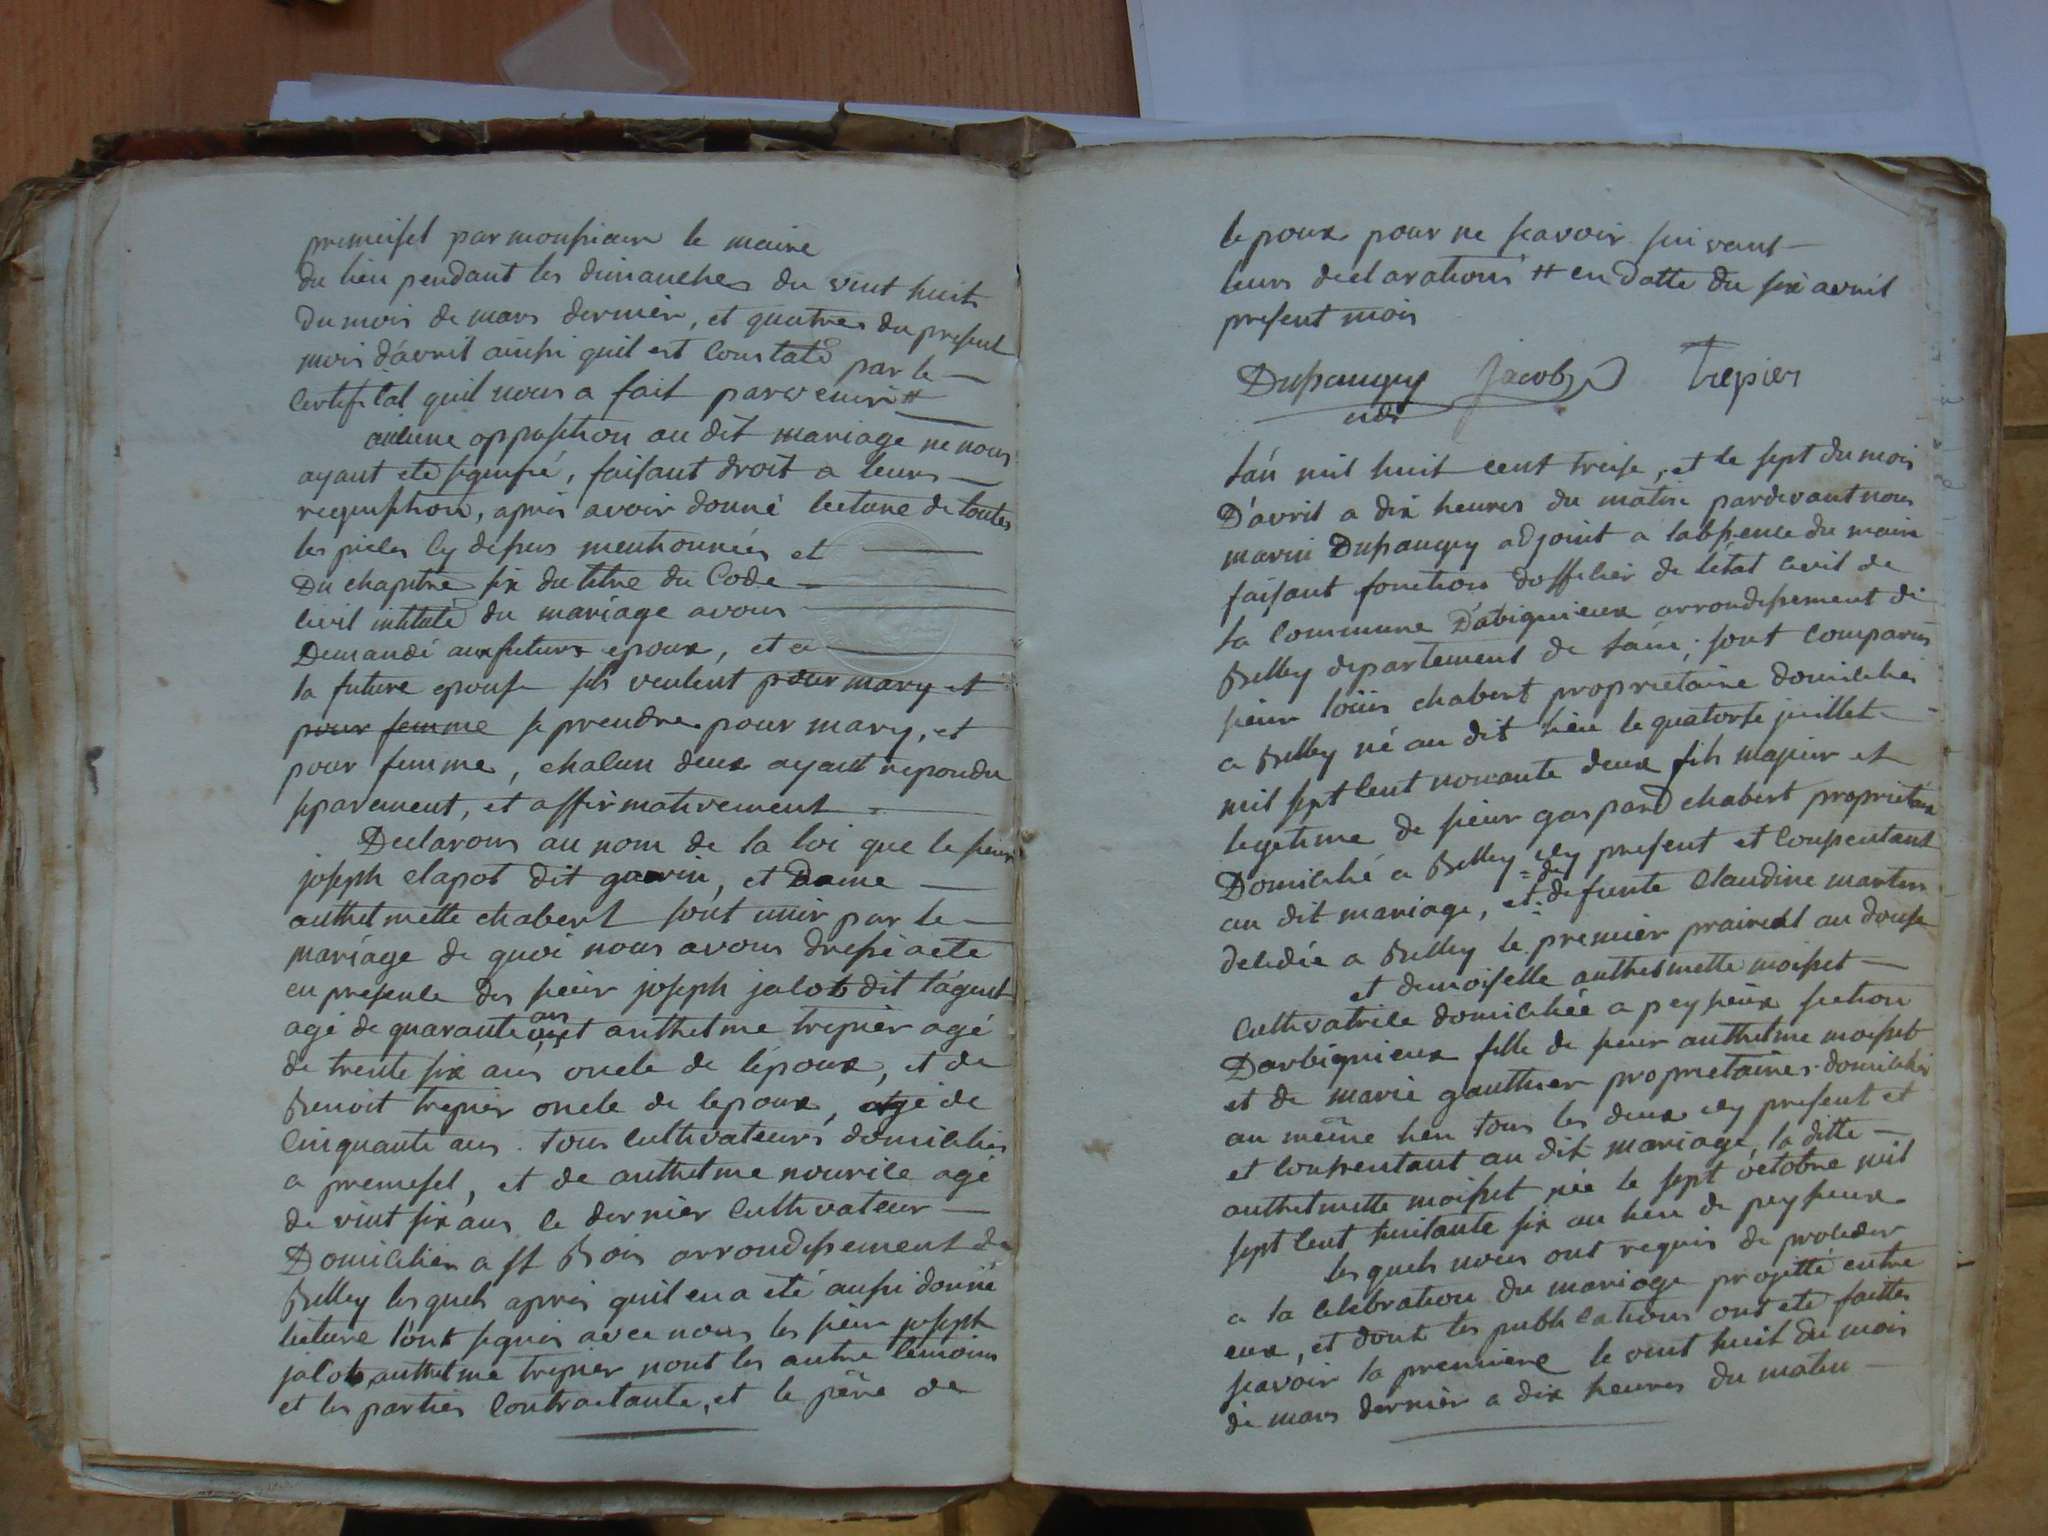 premeisel par monsieur le maire
du lieu pendant les dimanches du vint huit
du mois de mars dernier, et quatres du present
mois d'avril ainsi quil est constaté par le
certificat quil nous a fait parvenir #
aucune opposition au dit mariage ne nous
ayant eté signifié, faisant droit a leurs
requisition, après avoir donné lecture de toutes
les pieces cy dessus mentionnées et
Du chapitre six du titre du Code
civil intitulé du mariage avons
Demandé aux futurs epoux, et a
la future epouse sils veulent pour mary et
pour femme se prendre pour mary, et
pour femme, chacun deux ayant repondu
separement, et affirmativement
Declarons au nom de la loi que le sieur
joseph clapot dit guerin, et Dame
anthelmette chabert sont unir par le
mariage de quoi nous avons dressé acte
en presence des sieur joseph jacob dit
agé de quarante ans et anthelme trepier agé
de trente six ans oncle de l'époux, et de
Benoit trepier oncle de lepoux, agé de
cinquante ans. tous cultivateurs domiciliés
a premesel, et de anthelme nourice agé
de vint six ans ce dernier cultivateur
Domicilier a st Bois arrondissement de
Belley les quels après quil en a eté aussi donné
lecture l'ont signés avec nous les sieur joseph
jacob, anthelme trepier nont les autre temoins
et les parties contractante, et le père de
lepoux pour ne scavoir suivant
leurs declarations # en datte du six avril
present mois
Dupaugey Jacob Trepier
adj
L'an mil huit cent treise, et le sept du mois
D'avril a dix heures du matin pardevant nous
marin Dupaugey adjoint a labsence du maire
faisant fonction dofficier de l'état civil de
la commune D'abignieux arrondissement de
Belley departement de l'ain; sont comparus
sieur loüis chabert proprietaire domiciliés
a Belley né au dit lieu le quatorse juillet
mil sept cent nonante deux fils majeur et
legetime de sieur gaspard chabert proprietaire
Domicilié a Belley icy present et consentant
au dit mariage, et de defunte Claudine martin
decedée a Belley le premier prairial an douse
et demoiselle anthelmette moisset
cultivatrice domiciliée a peysieux section
Darbignieux fille de sieur anthelme moisset
et de marie gauthier proprietaires domiciliés
au même lieu tous les deux icy present et
et consentant au dit mariage, la ditte
anthelmette moisset née le sept octobre mil
sept cent huitante six au lieu de peysieux
les quels nous ont requis de proceder
a la celebration du mariage projetté entre
eux, et dont les publications ont eté faittes
scavoir la premiere le vint huit du mois
de mars dernier a dix heures du matin